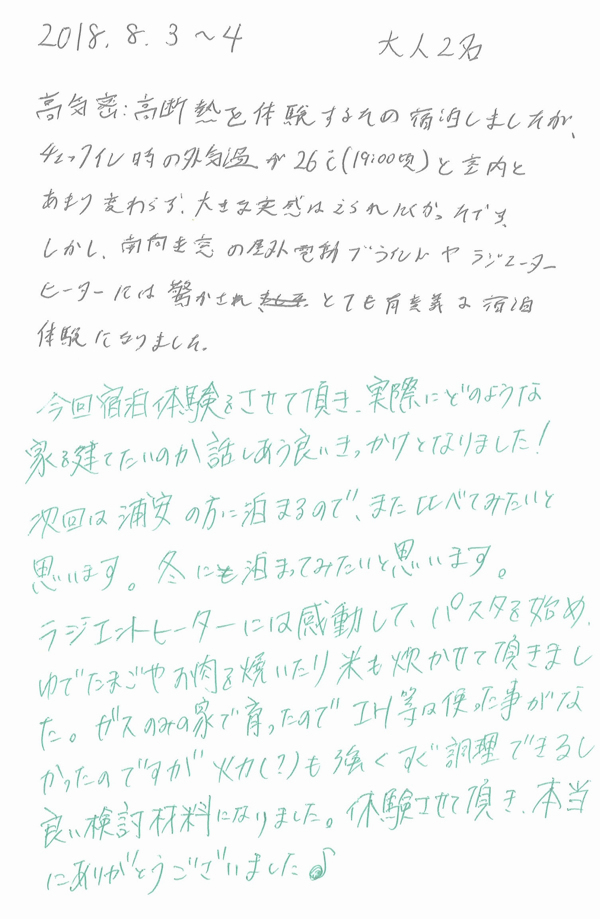 2018. 8. 3 〜4
大人2名
高気密・高断熱を体験するための宿泊しましたが、
チェックイン時の外気温が26℃(19:00頃)と室内と
あまり変わらず、大きな実感はえられにくかったです。
しかし、南向き窓の屋外電動ブラインドやラジエーター
ヒーターには驚かされ、とても有意義な宿泊
体験になりました。
今回宿泊体験をさせて頂き、実際にどのような
家を建てたいのか話しあう良いきっかけとなりました!
次回は浦安の方に泊まるので、また比べてみたいと
思います。冬にも泊まってみたいと思います。
ラジエントヒーターには感動して、パスタを始め、
ゆでたまごやお肉を焼いたり米も炊かせて頂きまし
た。ガスのみの家で育ったのでIH等は使った事がな
かったのですが火力(?)も強くすぐ調理できるし
良い検討材料になりました。体験させて頂き、本当
にありがとうございました♪